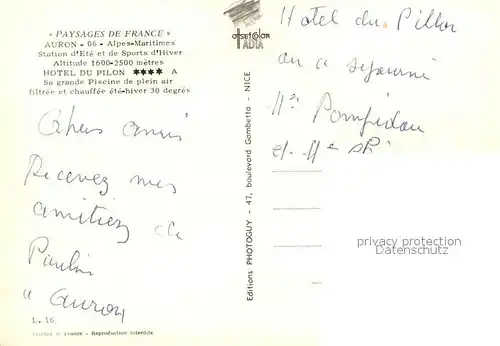 « PAYSAGES DE FRANCE »
AURON - 06 - Alpes-Maritimes
Station d'Eté et de Sports d'Hiver
Altitude 1600-2500 mètres
HOTEL DU PILON **** A
Sa grande Piscine de plein air
filtrée et chauffée été-hiver 30 degrés
Chers amis
Recevez mes
amitiés de
à Auron
L. 16
Printed in France - Reproduction interdite
Editions PHOTOGUY - 47, boulevard Gambetta - NICE
OFFSETCOLOR
IADIA
Hotel du Pillon
ou a séjourné
Mr Pompidou
et Me
privacy protection
DANMARKBOX.de